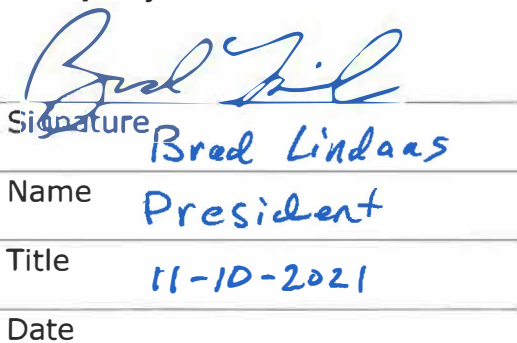 Brad
Signature
Brad Lindaas
Name
President
Title
11-10-2021
Date